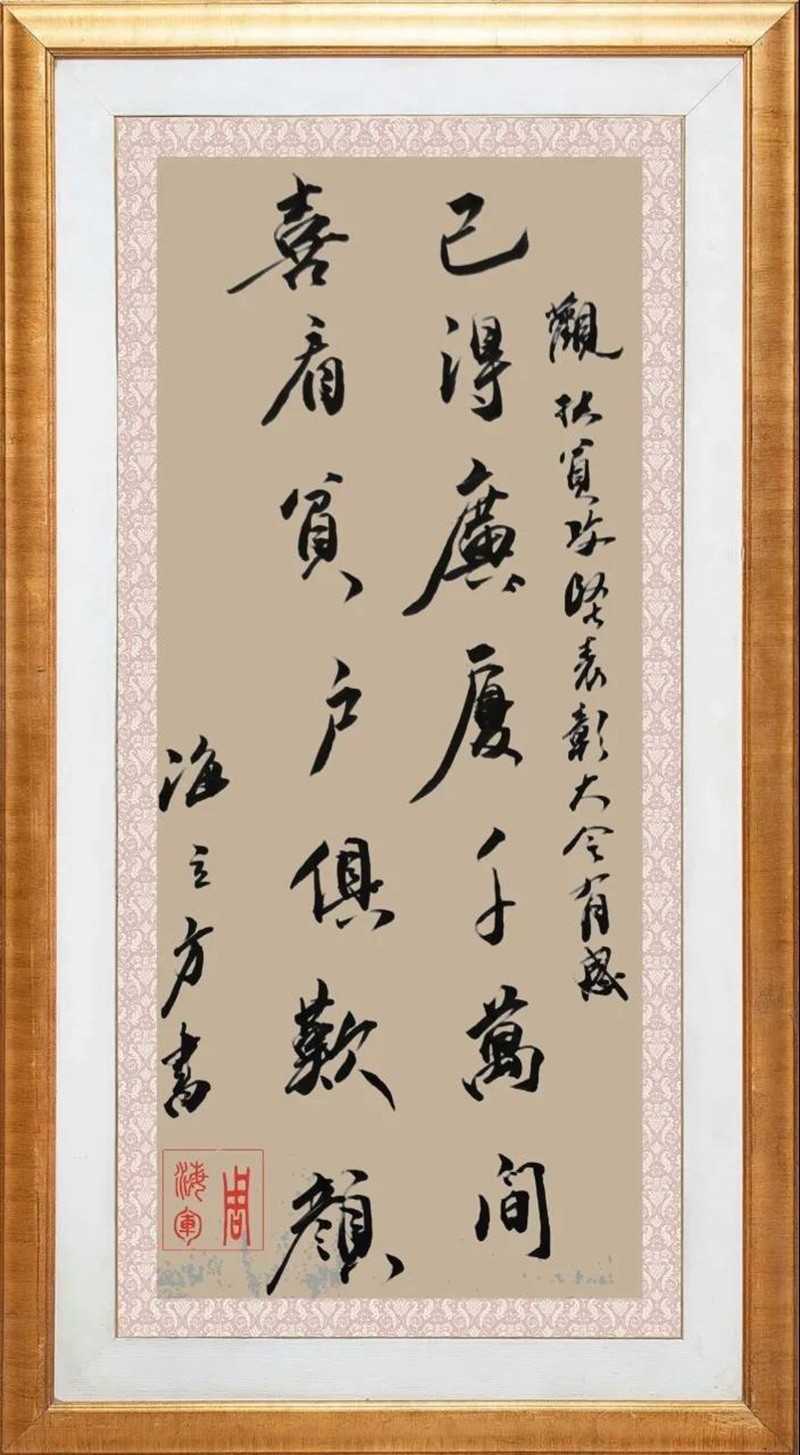 觀扶貧攻堅表彰大会有感
已得廣厦千萬間
喜看貧户俱歡顔
海立方書
周海軍